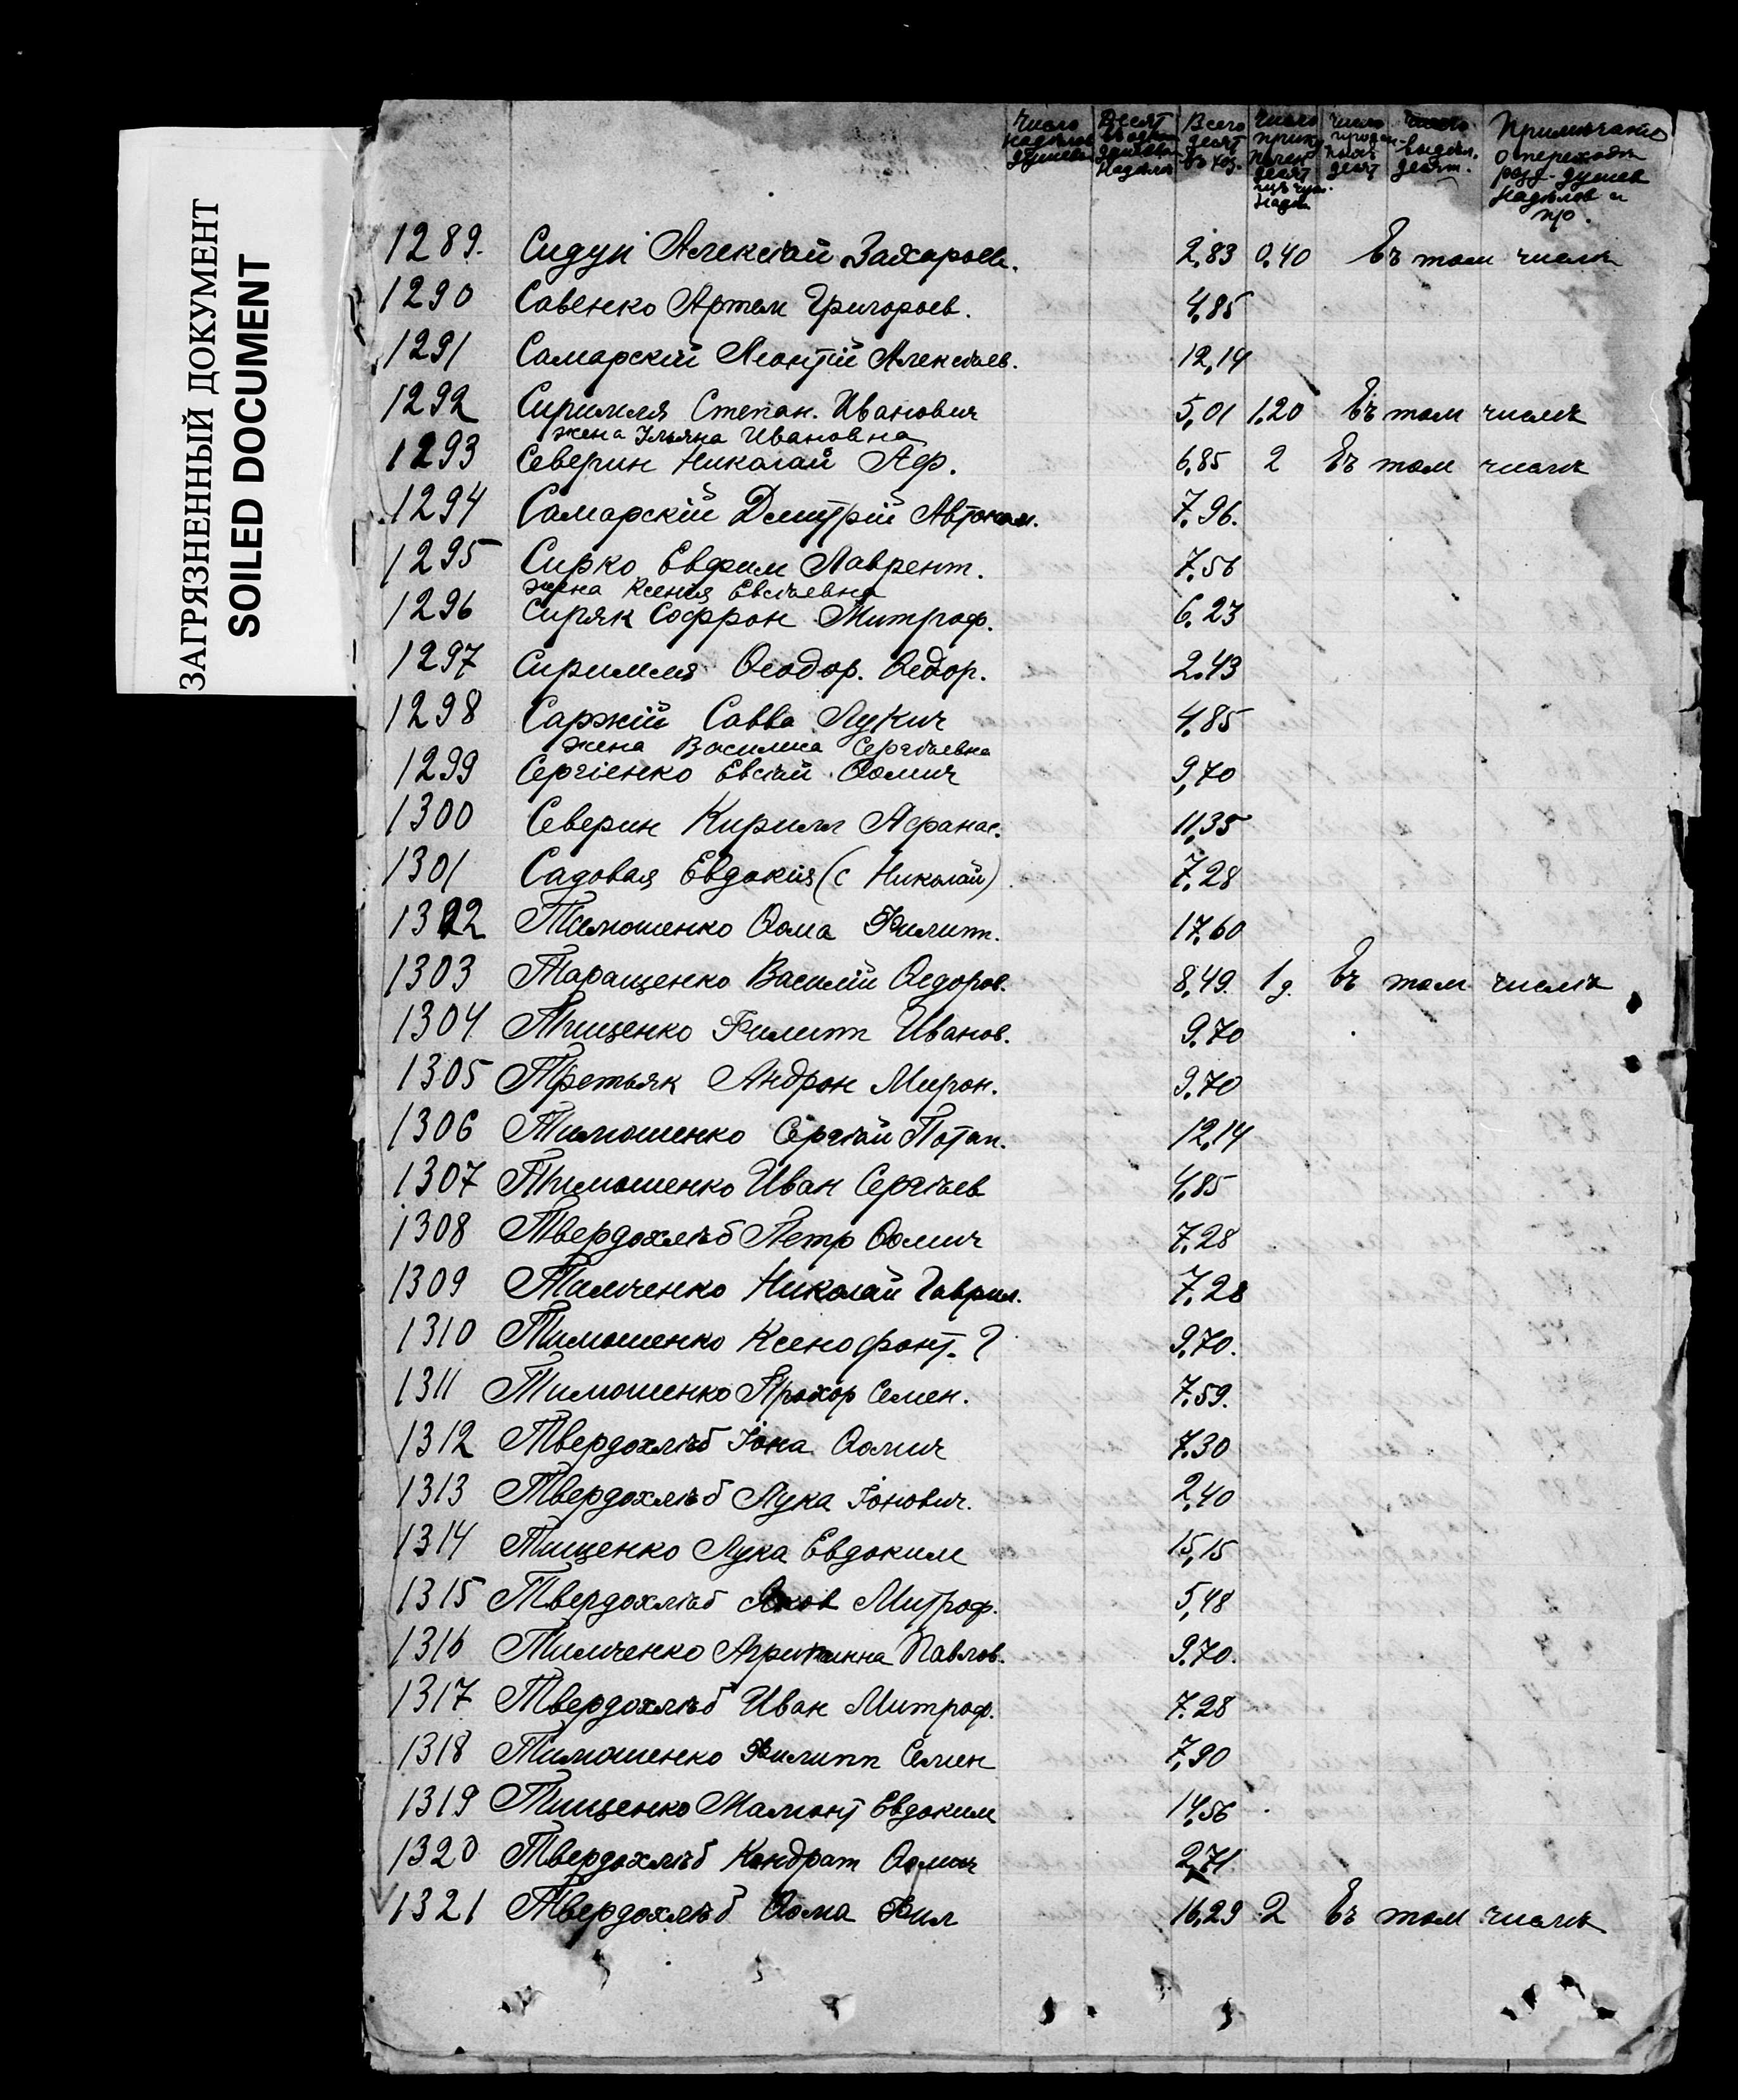 ЗАГРЯЗНЕННЫЙ ДОКУМЕНТ
SOILED DOCUMENT
Число надѣлов душевы
Десят въ одном душевом надѣлѣ
Всего десят въ хоз.
Число прику пленн десят изъ чуж. надѣл
Число продан ныхъ десят
выдѣл. десят.
Примѣчаніе о переходѣ разд. душев надѣлов и пр.
1289. Сидун Алексѣй Захаров. 2,83 0,40 Въ том числѣ
1290 Савенко Артем Григорьев. 4,85
1291 Самарскій Леонтій Алексѣев. 12,14
1292 Сиримля Степан. Иванович 5,01 1,20 Въ том числѣ
жена Ульяна Ивановна
1293 Северин Николай Аф. 6,85 2 Въ том числѣ
1294 Самарскій Дмитрій Автоном. 7.96.
1295 Сирко Евфим Лаврент. 7,56
жена Ксенія Евсѣевна
1296 Сиряк Софрон Митроф. 6,23
1297 Сиримля Ѳеодор. Ѳедор. 2,43
1298 Саржій Савва Лукич 4,85
жена Василиса Сергѣевна
1299 Сергіенко Евсѣй Ѳомич 9,70
1300 Северин Кирилл Афанас. 11,35
1301 Садовая Евдокія (с Николай) 7,28
1302 Тимошенко Ѳома Филипп. 17,60
1303 Таращенко Василій Ѳедоров. 8,49. 1 д. Въ том числѣ
1304 Тищенко Филипп Иванов. 9.70
1305 Третьяк Андрон Мирон. 9.70
1306 Тимошенко Сергѣй Потап. 12,14
1307 Тимошенко Иван Сергѣев 4,85
1308 Твердохлѣб Петр Ѳомич 7.28
1309 Тимченко Николай Гаврил. 7.28
1310 Тимошенко Ксенофонт. ? 9.70.
1311 Тимошенко Прохор Семен. 7.59.
1312 Твердохлѣб Іона Ѳомич 7.30
1313 Твердохлѣб Лука Іонович. 2,40
1314 Тищенко Лука Евдоким 15,15
1315 Твердохлѣб Яков Митроф. 5,48
1316 Тимченко Агрипинна Павлов. 9.70.
1317 Твердохлѣб Иван Митроф. 7.28
1318 Тимошенко Филипп Семен 7,90
1319 Тищенко Мамонт Евдоким 14,56
1320 Твердохлѣб Кондрат Ѳомич 2,71
1321 Твердохлѣб Ѳома Фил 16,29 2 Въ том числѣ